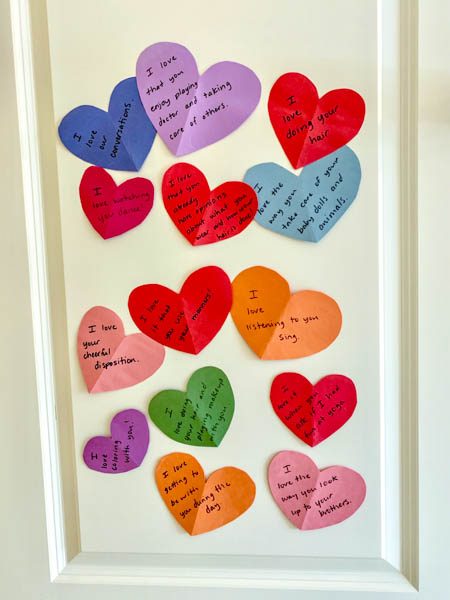 I love
that you
enjoy playing
doctor and taking
care of others.
I love
our
conversations.
I
love
doing your
hair.
I
love watching
you dance.
I love
that you
already
have opinions
about what you
wear and how your
hair is done.
I
love the
way you
take care of your
baby dolls and
animals.
I love
it that
you use
your manners!
I
love
listening to you
sing.
I love
your
cheerful
disposition.
I
love doing
your hair and
playing makeup
with you.
I
love it
when you
ask if I had
fun at yoga.
I
love
coloring
with you!
I love
getting to
be with
you during the
day.
I
love the
way you look
up to your
brothers.